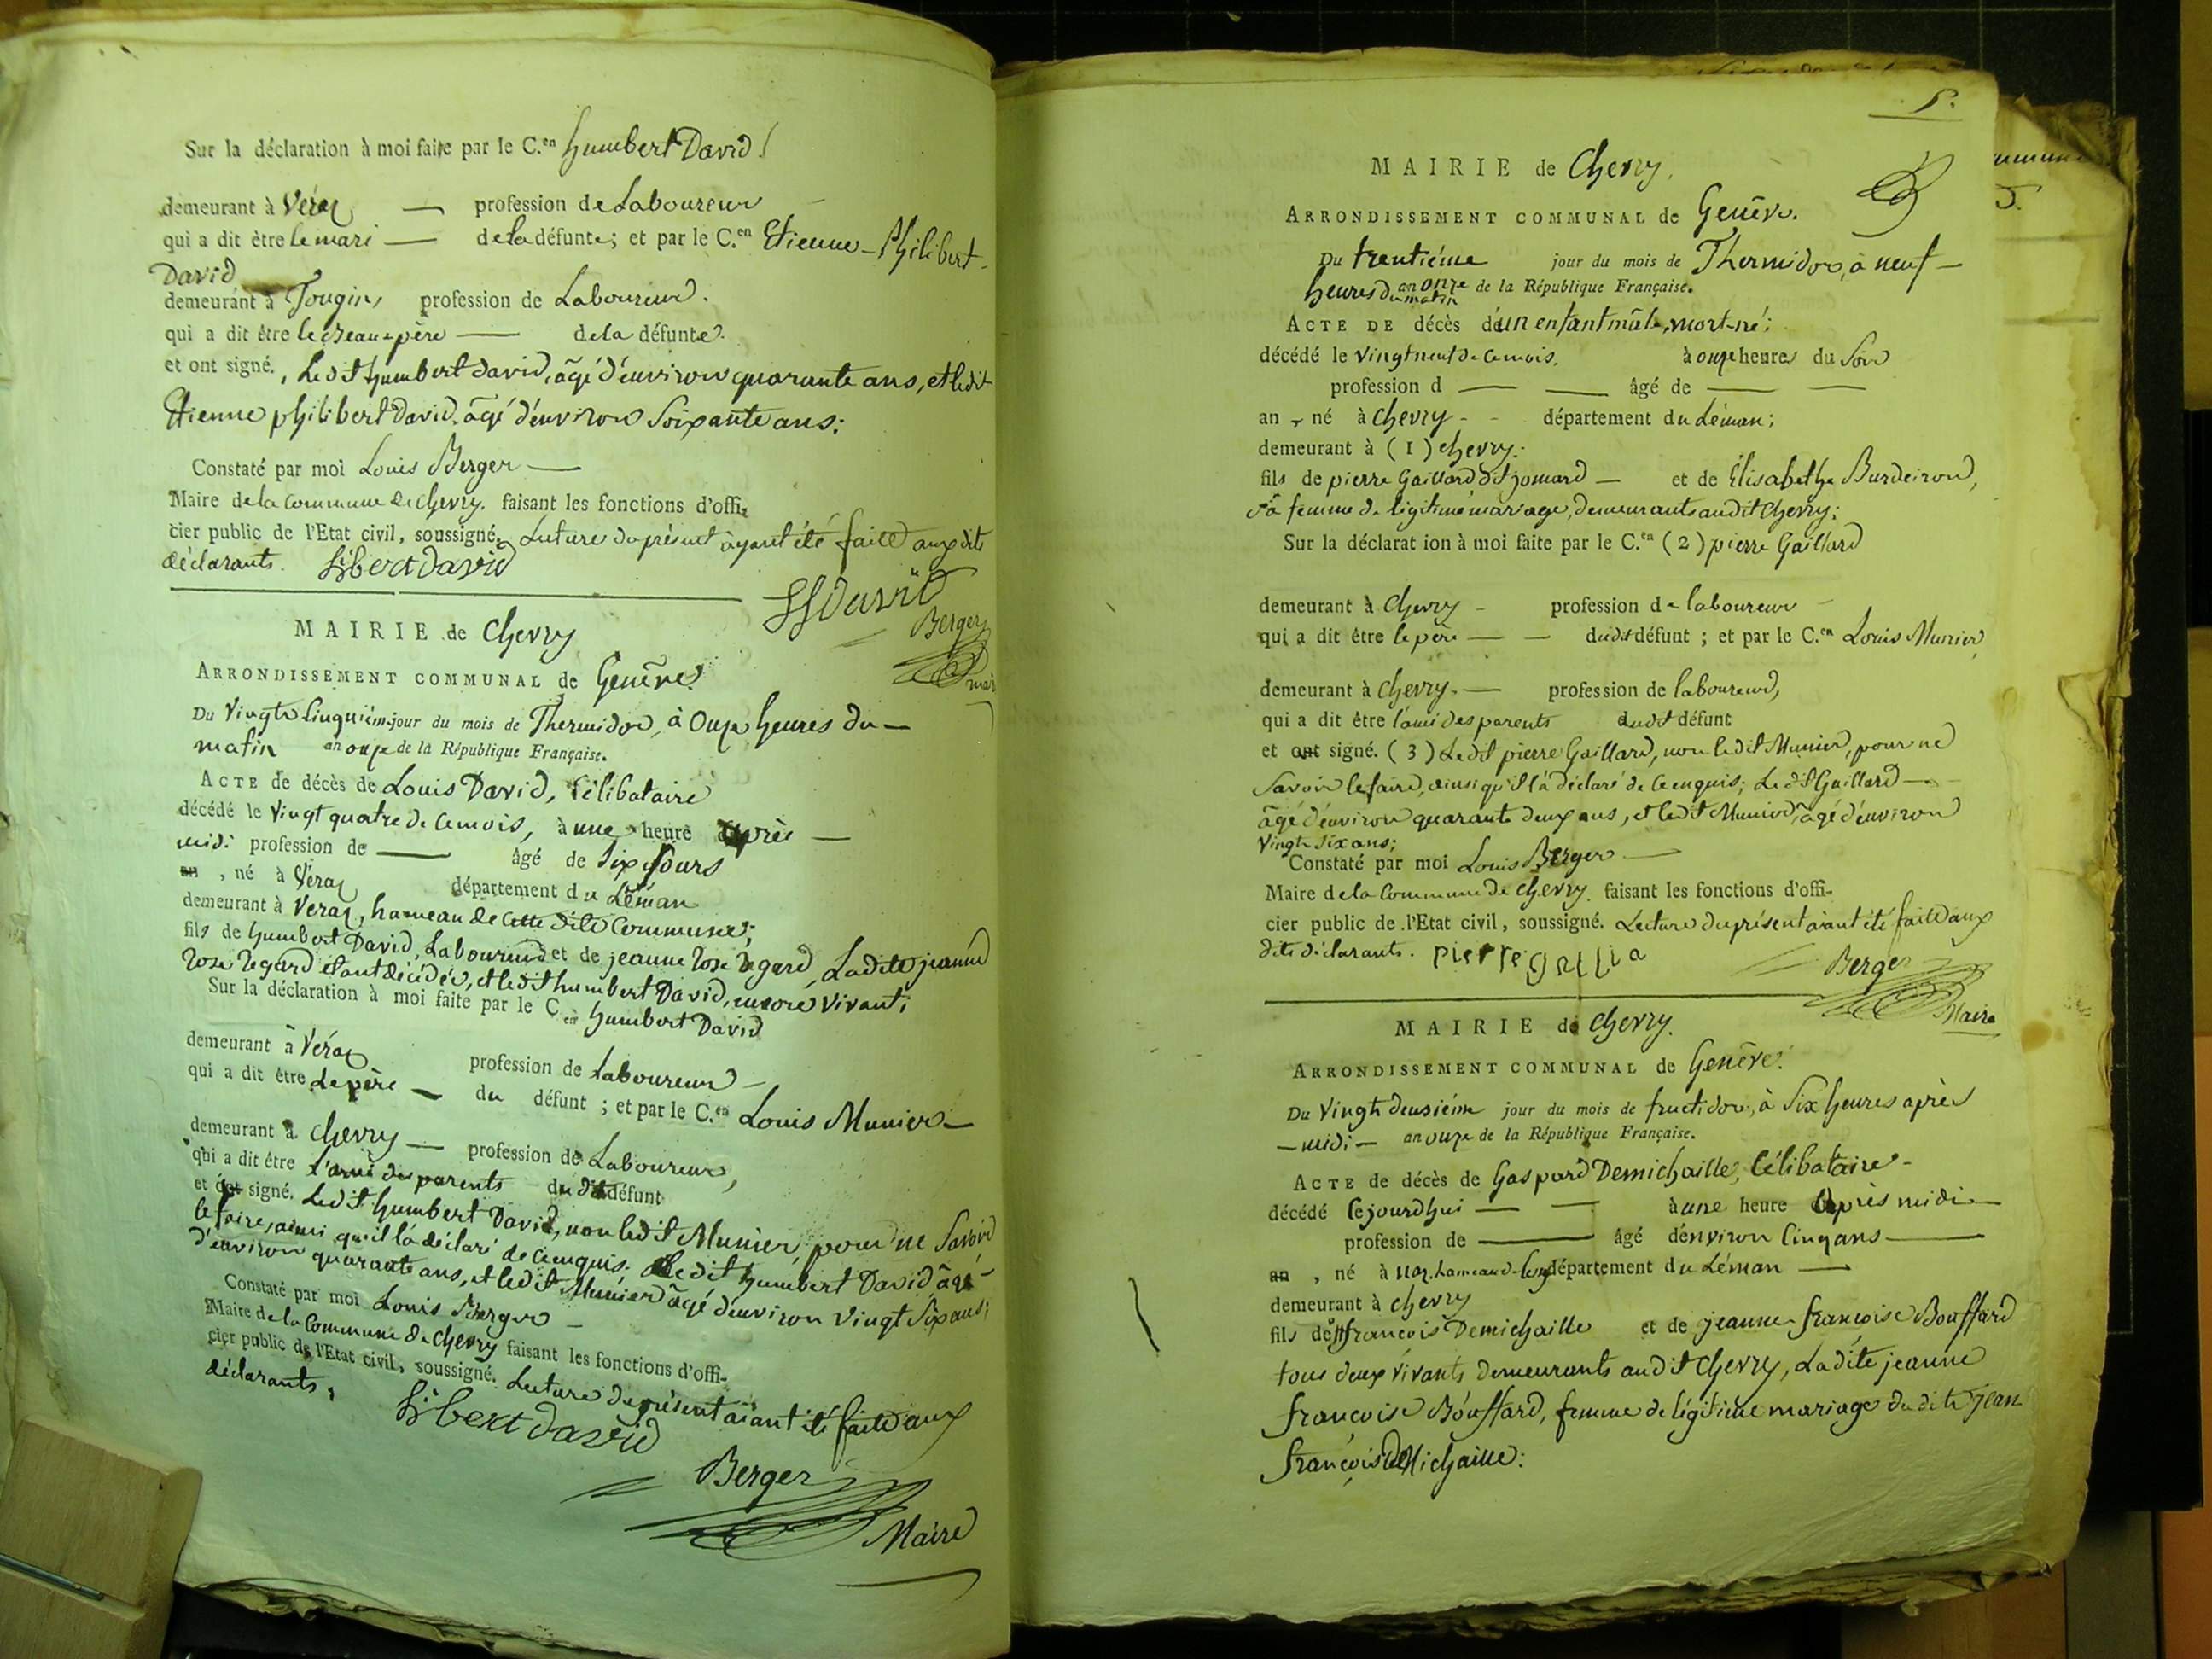 Sur la déclaration à moi faite par le C.en humbert David
demeurant à Véraz — profession de Laboureur
qui a dit être le mari — de la défunte; et par le C.en Etienne-Philibert-
David
demeurant à Tougin, profession de Laboureur.
qui a dit être le Beau-père — de la défunte.
et ont signé. Ledit humbert david, âgé d'environ quarante ans, et ledit
Etienne philibert David, âgé d'environ Soixante ans:
Constaté par moi Louis Berger —
Maire de la commune de chevry. faisant les fonctions d'offi-
cier public de l'Etat civil, soussigné. Lecture du présent ayant été faite auxdits
déclarants. hibert david
david
Berger
MAIRIE de Chevry
ARRONDISSEMENT COMMUNAL de Genève
Du Vingt Cinquième jour du mois de Thermidor, à Onze heures du —
matin an onze de la République Française.
ACTE de décès de Louis David, Célibataire
décédé le Vingt quatre de ce mois, à une heure après —
midi profession de — âgé de Six jours
an , né à Véraz département du Léman
demeurant à Veraz, hameau de Cette dite Commune;
fils de humbert David, Laboureur et de jeanne Rose Regard, Ladite jeanne
rose Regard étant décédée, et ledit humbert David, encore Vivant;
Sur la déclaration à moi faite par le C.en humbert David
demeurant à Véraz profession de Laboureur —
qui a dit être Le père — du défunt ; et par le C.en Louis Munier —
demeurant à chevry — profession de Laboureur,
qui a dit être l'ami des parents du dit défunt
et ont signé. Ledit humbert David, non ledit Munier pour ne Savoir
le faire, ainsi qu'il l'a déclaré de ce enquis. Ledit humbert David âgé
d'environ quarante ans, et ledit Munier âgé d'environ vingt Six ans;
Constaté par moi Louis Berger —
Maire de la Commune de chevry faisant les fonctions d'offi-
cier public de l'Etat civil, soussigné. Lecture du présent aiant été faite aux
déclarants. hibert david
Berger
Maire
5.
MAIRIE de Chevry,
ARRONDISSEMENT COMMUNAL de Genève.
Du trentiéme jour du mois de Thermidor, à neuf —
heures du matin an onze de la République Française.
ACTE DE décès d'un enfant mâle, mort-né;
décédé le Vingt neuf de ce mois. à onze heures du Soir
profession d — — âgé de — —
an , né à chevry - - département du Léman;
demeurant à (1) chevry.
fils de pierre Gaillard dit jomard — et de Élisabethe Burdeiron,
Sa femme de légitime mariage, demeurants audit Chevry;
Sur la déclarat ion à moi faite par le C.en (2) pierre Gaillard
demeurant à Chevry - profession de laboureur
qui a dit être le père — — dudit défunt ; et par le C.en Louis Munier,
demeurant à chevry. — profession de laboureur,
qui a dit être l'ami des parents dudit défunt
et ont signé. (3) Ledit pierre Gaillard, non ledit Munier, pour ne
Savoir le faire, ainsi qu'il l'a déclaré de ce enquis; Ledit Gaillard —
âgé d'environ quarante deux ans, et ledit Munier, âgé d'environ
Vingt Six ans;
Constaté par moi Louis Berger —
Maire de la Commune de chevry. faisant les fonctions d'offi-
cier public de l'Etat civil, soussigné. Lecture du présent aiant été faite aux
dits déclarants. pierre gallia
Berger
Maire
MAIRIE de chevry.
ARRONDISSEMENT COMMUNAL de Genève.
Du Vingt deusiéme jour du mois de fructidor, à Six heures après
— midi — an onze de la République Française.
ACTE de décès de Gaspard Demichaille, Célibataire -
décédé Cejourdhui — — à une heure Après midi —
profession de — âgé d'environ Cinq ans —
an , né à département du Léman —
demeurant à chevry
fils de jn françois Demichaille et de jeanne françoise Bouffard
tous deux vivants demeurants audit Chevry, Ladite jeanne
françoise Bouffard, femme de légitime mariage dudit jean
françois deMichaille: